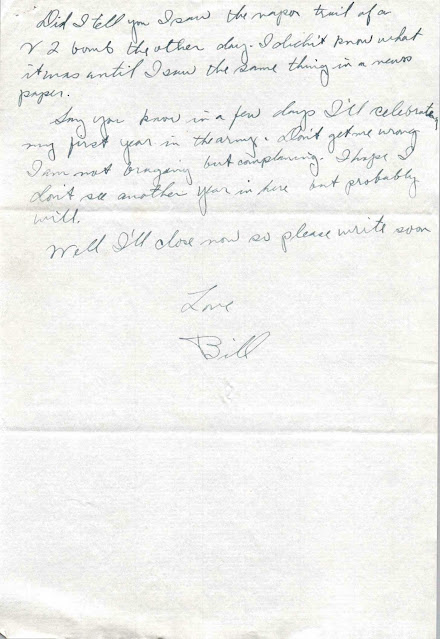 Did I tell you I saw the vapor trail of a
V 2 bomb the other day. I didn't know what
it was until I saw the same thing in a news
paper.
Say you know in a few days I'll celebrate
my first year in the army. Don't get me wrong
I am not braging but complaning. I hope I
don't see another year in here but probably
will.
Well I'll close now so please write soon
Love
Bill